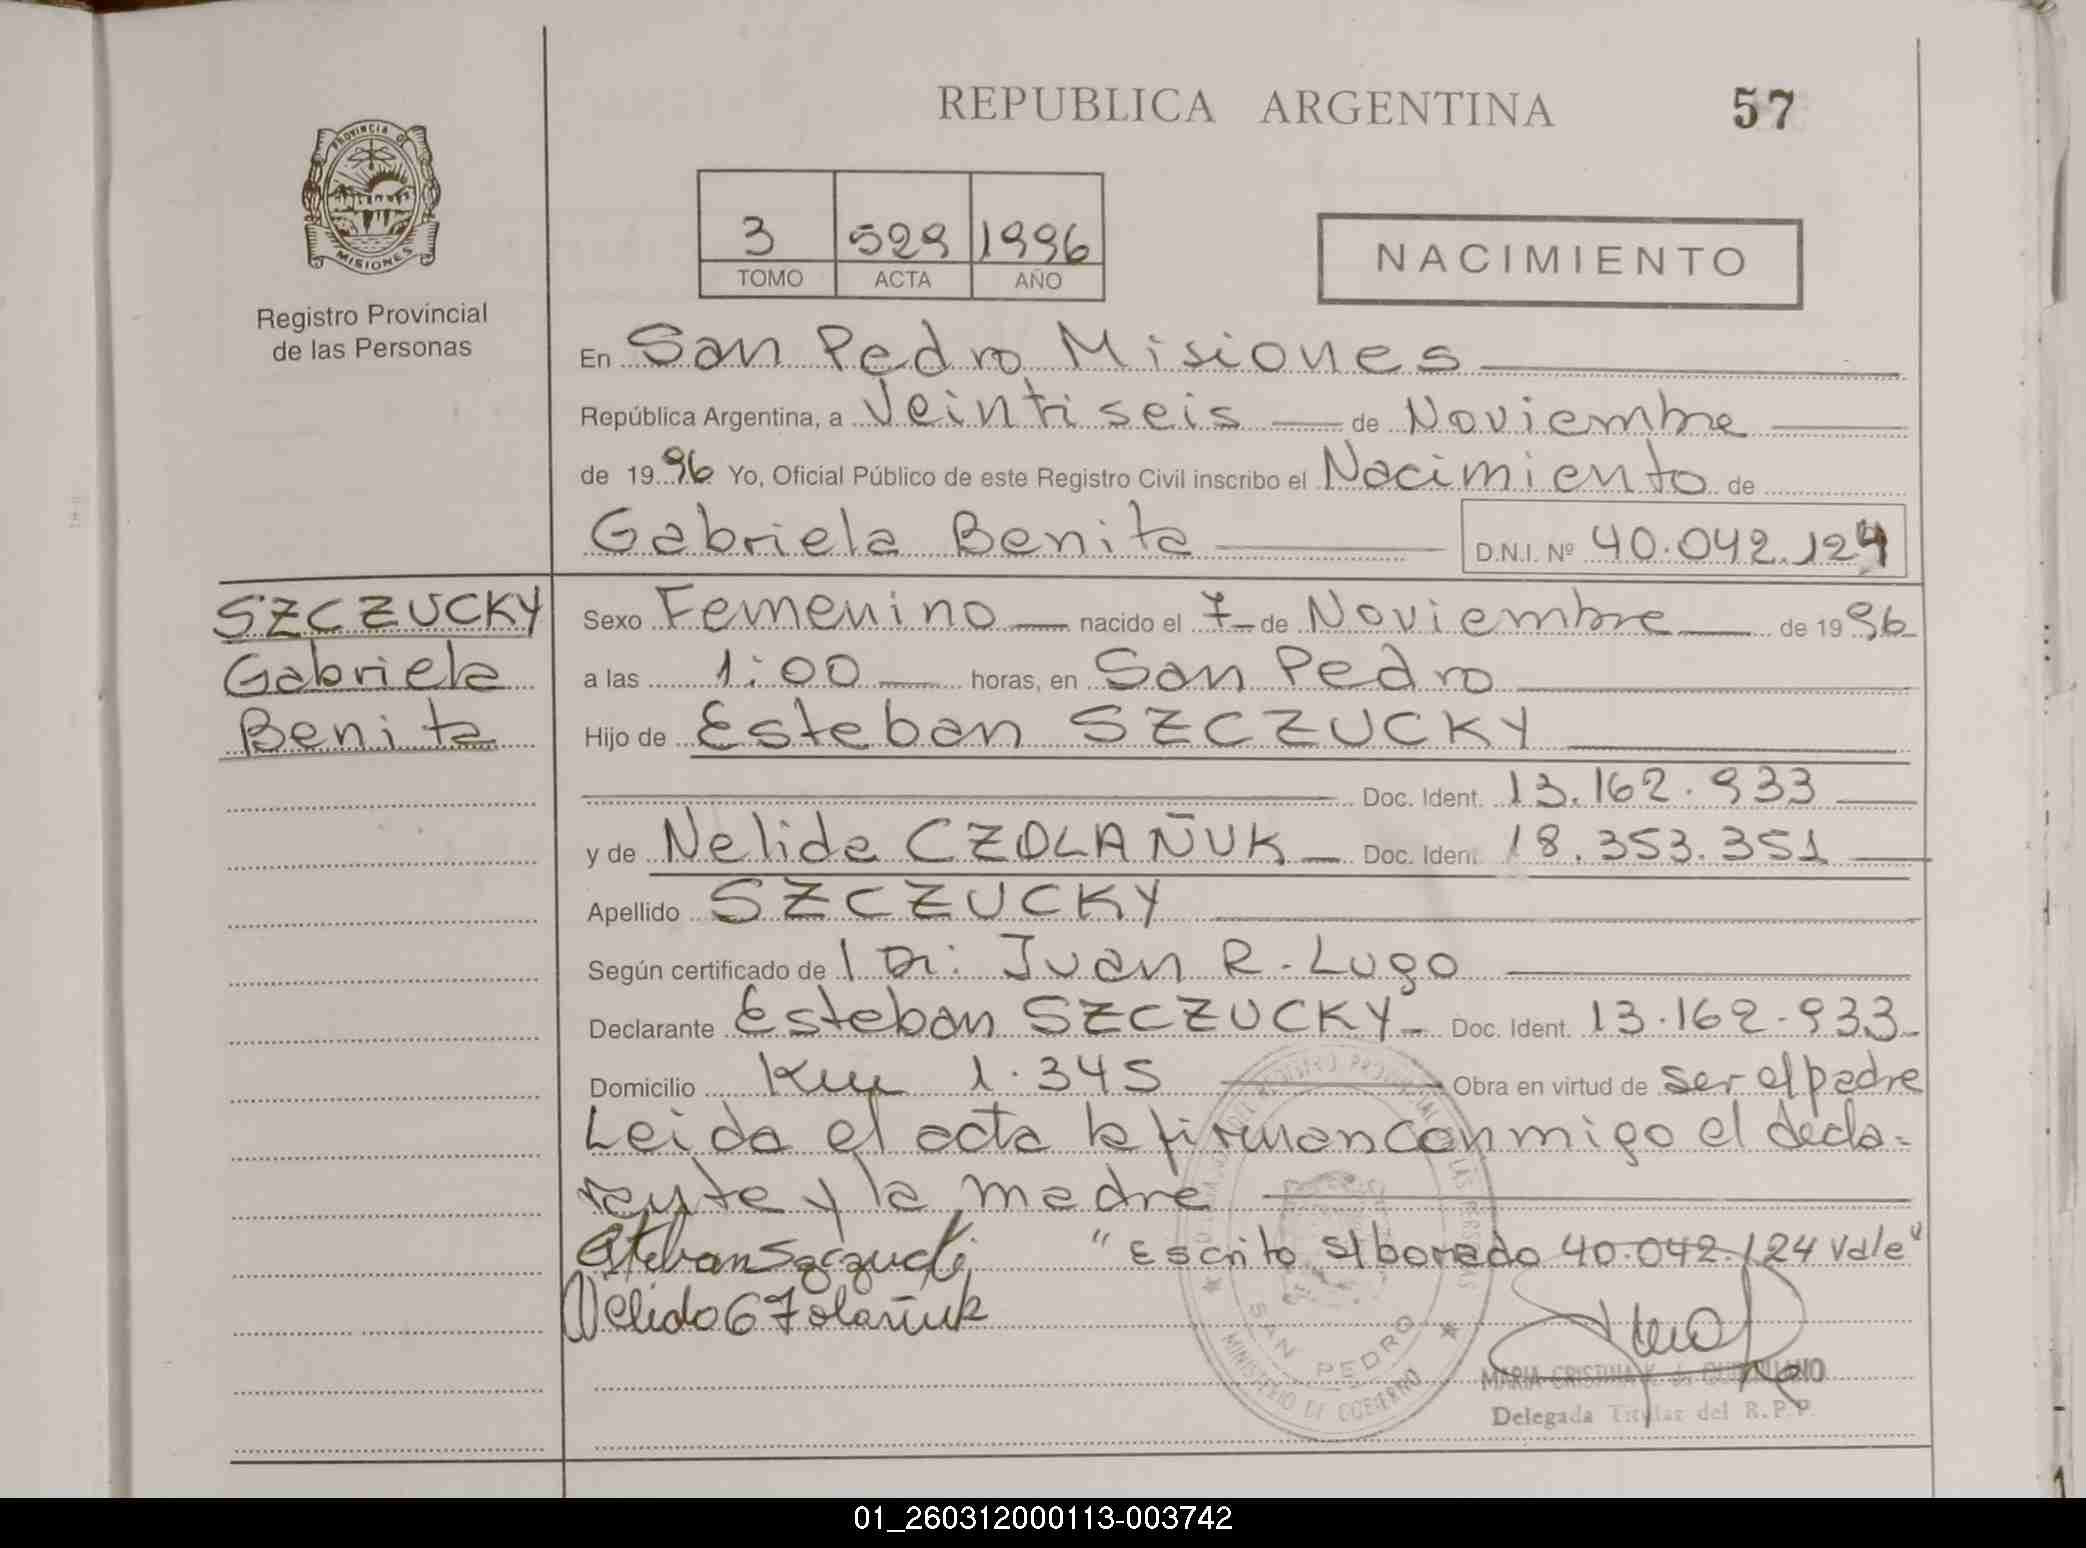 REPUBLICA ARGENTINA 57
PROVINCIA DE
MISIONES
Registro Provincial
de las Personas
3 529 1996
TOMO ACTA AÑO
NACIMIENTO
En San Pedro Misiones
República Argentina, a Veintiseis de Noviembre
de 1996 Yo, Oficial Público de este Registro Civil inscribo el Nacimiento de
Gabriela Benita D.N.I. Nº 40.042.124
SZCZUCKY
Gabriela
Benita
Sexo Femenino nacido el 7 de Noviembre de 1996
a las 1:00 horas, en San Pedro
Hijo de Esteban SZCZUCKY
Doc. Ident. 13.162.933
y de Nelida CZOLAÑUK Doc. Ident. 18.353.351
Apellido SZCZUCKY
Según certificado de Dr: Juan R. Lugo
Declarante Esteban SZCZUCKY Doc. Ident. 13.162.933
Domicilio Km 1.345 Obra en virtud de ser el padre
Leida el acta la firman conmigo el decla-
rante y la madre
Esteban Szczucki "Escrito s/borrado 40.042.124 Vale"
Nelida
SAN PEDRO
MINISTERIO DE GOBIERNO
MARIA CRISTINA
Delegada Titular del R.P.P.
01_260312000113-003742